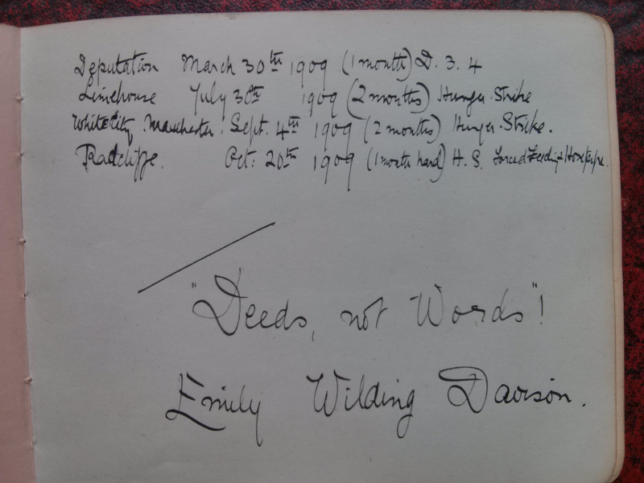 Deputation March 30th 1909 (1 month) D. 3. 4
Limehouse July 30th 1909 (2 months) Hunger-Strike
White City, Manchester: Sept. 4th 1909 (2 months) Hunger-Strike.
Radcliffe. Oct: 20th 1909 (1 month hard) H. S. Forced Feeding & Hosepipe.
"Deeds, not Words"!
Emily Wilding Davison.